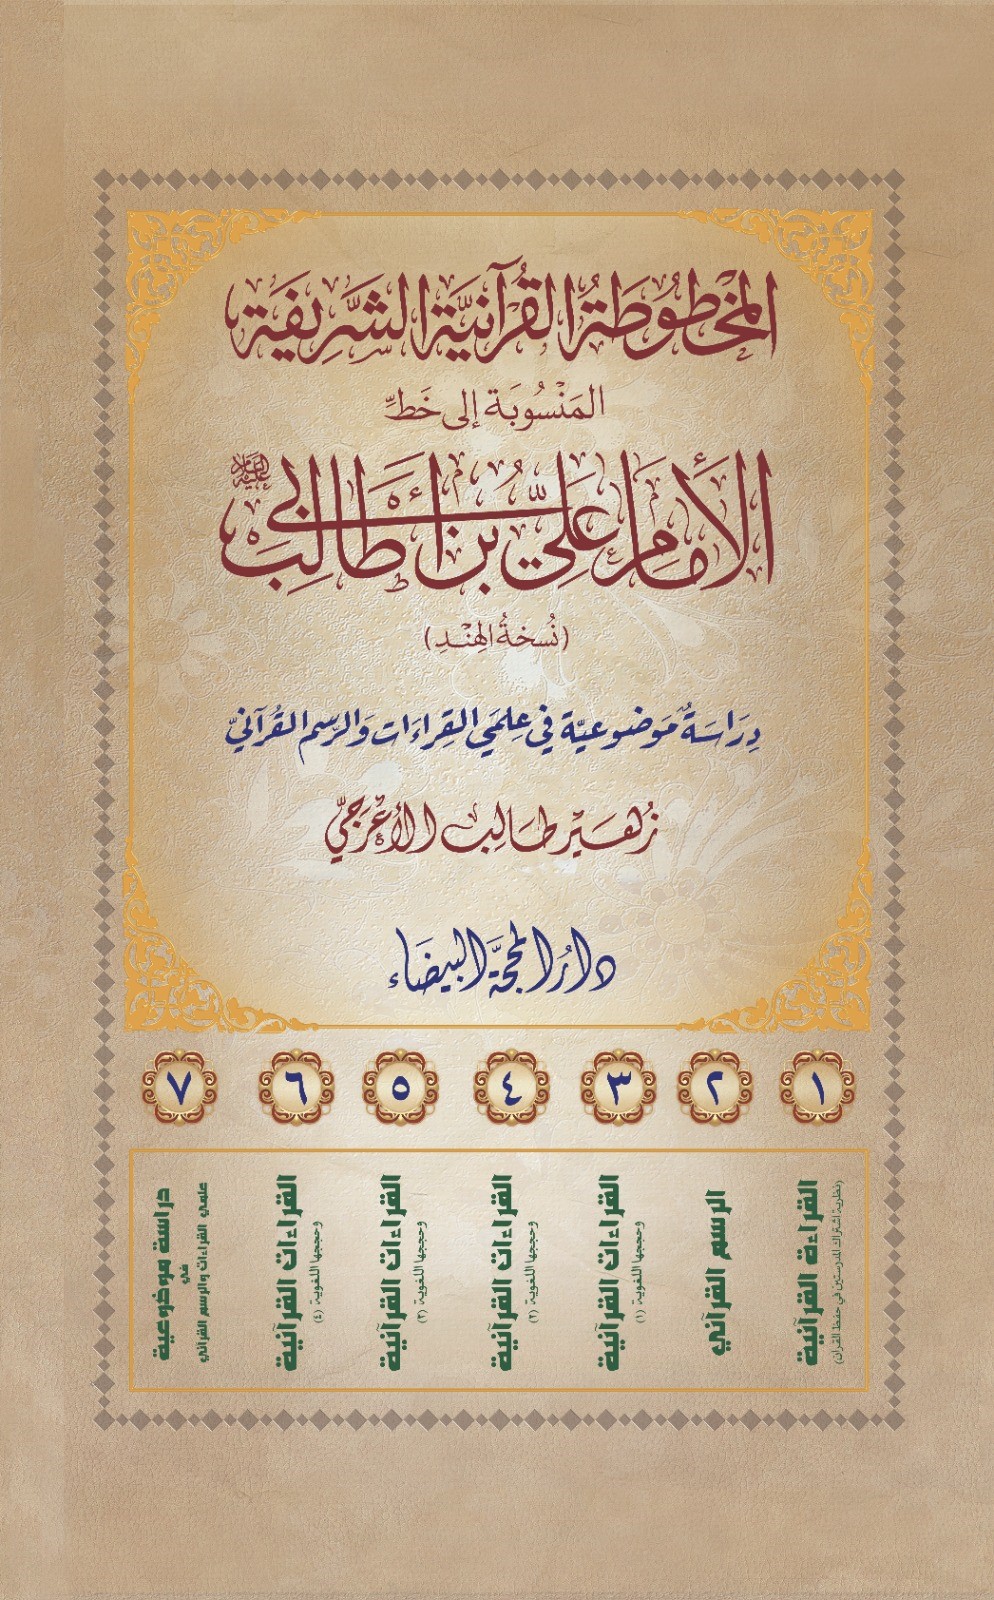 المَخْطُوطَةُ القُرْآنِيَّةُ الشَّرِيفَة
المَنْسُوبَة إلى خَطِّ
الإِمَامِ عَلِيِّ بْنِ أَبِي طَالِبٍ عليه السلام
(نُسخَةُ الهِنْدِ)
دِرَاسَةٌ مَوضُوعيَّة في عِلمَي القِراءَات وَالرَّسم القُرآنيّ
زُهَيْر طَالِب الأَعْرَجِيّ
دَارُ المَحَجَّة البَيضَاء
١ ٢ ٣ ٤ ٥ ٦ ٧
القراءة القرآنية
(نظرية اشتراك المدرستين في حفظ القرآن)
الرسم القرآني
القراءات القرآنية
وحججها اللغوية (١)
القراءات القرآنية
وحججها اللغوية (٢)
القراءات القرآنية
وحججها اللغوية (٣)
القراءات القرآنية
وحججها اللغوية (٤)
دراسة موضوعية
في
علمي القراءات والرسم القرآني